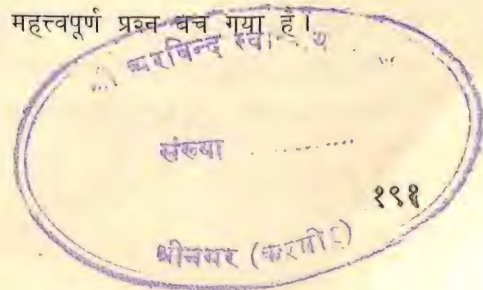 महत्त्वपूर्ण प्रश्न बच गया है।
अरबिन्द
संख्या ............
१९१
श्रीनगर (कश्मीर)